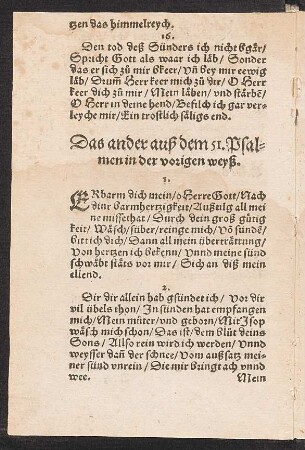 tzen das himmelreych.
16.
Den tod deß Sünders ich nicht bgär/
Spricht Gott als waar ich läb/ Sonder
das er sich zů mir bkeer/ Vñ bey mir eewig
läb/ Drum̃ Herr keer mich zů dir/ O Herr
keer dich zů mir/ Mein läben/ vnd stärbē/
O Herr in deine hend/ Befilch ich gar ver-
leyche mir/ Ein trostlich säligs end.
Das ander auß dem 51. Psal-
men in der vorigen weyß.
1.
ERbarm dich mein/ o Herre Gott/ Nach
diner barmhertzigkeit/ Außtilg all mei
ne missethat/ Durch dein groß gütig
keit/ Wäsch/ süber/ reinge mich/ Võ sündē/
bitt ich dich/ Dann all mein überträttung/
Von hertzen ich bekeñ/ Vnnd meine sünd
schwäbt stäts vor mir/ Sich an diß mein
ellend.
2.
Dir dir allein hab gsündet ich/ Vor dir
vil übels thon/ In sünden hat empfangen
mich/ Mein můter/ vnd geborn/ Mit Isop
wäsch mich schon/ Das ist/ dem blůt deins
Sons/ Allso rein wird ich werden/ Vnnd
weysser dañ der schnee/ Vom außsatz mei-
ner sünd vnrein/ Die mir bringt ach vnnd
wee. Mein